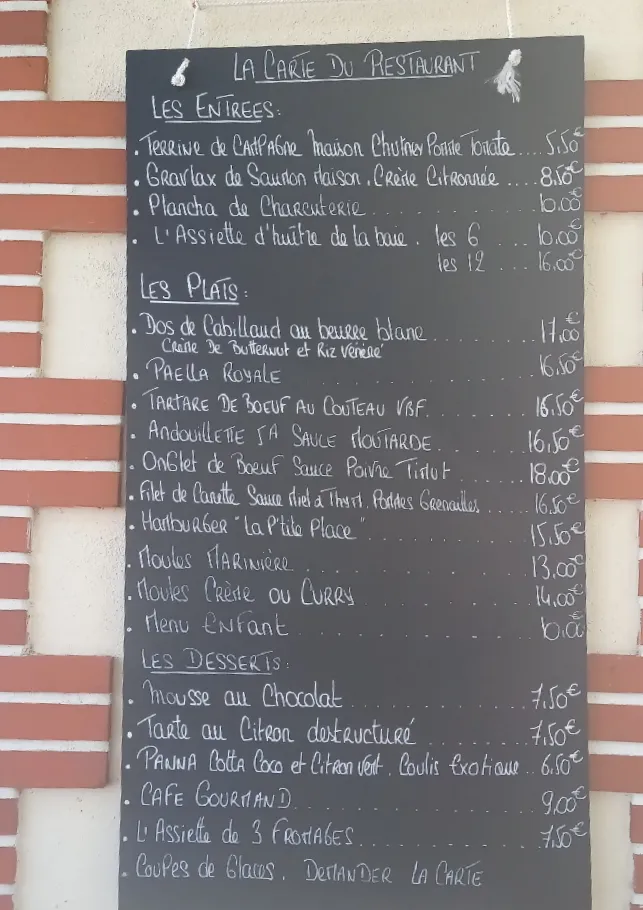 LA CARTE DU RESTAURANT
LES ENTREES:
. TERRINE de CAMPAGNE maison Chutney Pomme Tomate.... 5,50€
. GRAVLAX de Saumon Maison. CRème Citronnée .... 8,50€
. Plancha de CHARCUTERIE........ 10.00€
. L'ASSIETTE d'huître de la baie. les 6 .... 10.00€
les 12 .... 16.00€
LES PLATS:
. Dos de Cabillaud au beurre blanc....... 17,00€
CRème De Butternut et Riz vénéré
. PAELLA ROYALE ........ 16,50€
. TARTARE DE BOEUF AU COUTEAU VBF....... 16,50€
. ANDOUILLETTE 5A SAUCE MOUTARDE....... 16,50€
. ONGLET de BOEUF Sauce Poivre Timut ..... 18.00€
. Filet de Canette Sauce Miel & Thym. Pommes Grenailles ..... 16.50€
. HAMBURGER "La P'tite Place" ........ 15,50€
. Moules MARINIÈRE ........ 13,00€
. Moules CRème OU CURRY ....... 14,00€
. Menu ENFANT ......... 10,00
LES DESSERTS:
. Mousse au Chocolat ........ 7,50€
. Tarte au CITRON destructuré ...... 7,50€
. PANNA Cotta Coco et Citron vert. Coulis Exotique .. 6.50€
. CAFE GOURMAND ......... 9,00€
. L'ASSIETTE de 3 FROMAGES ........ 7,50€
. Coupes de Glaces. DEMANDER LA CARTE